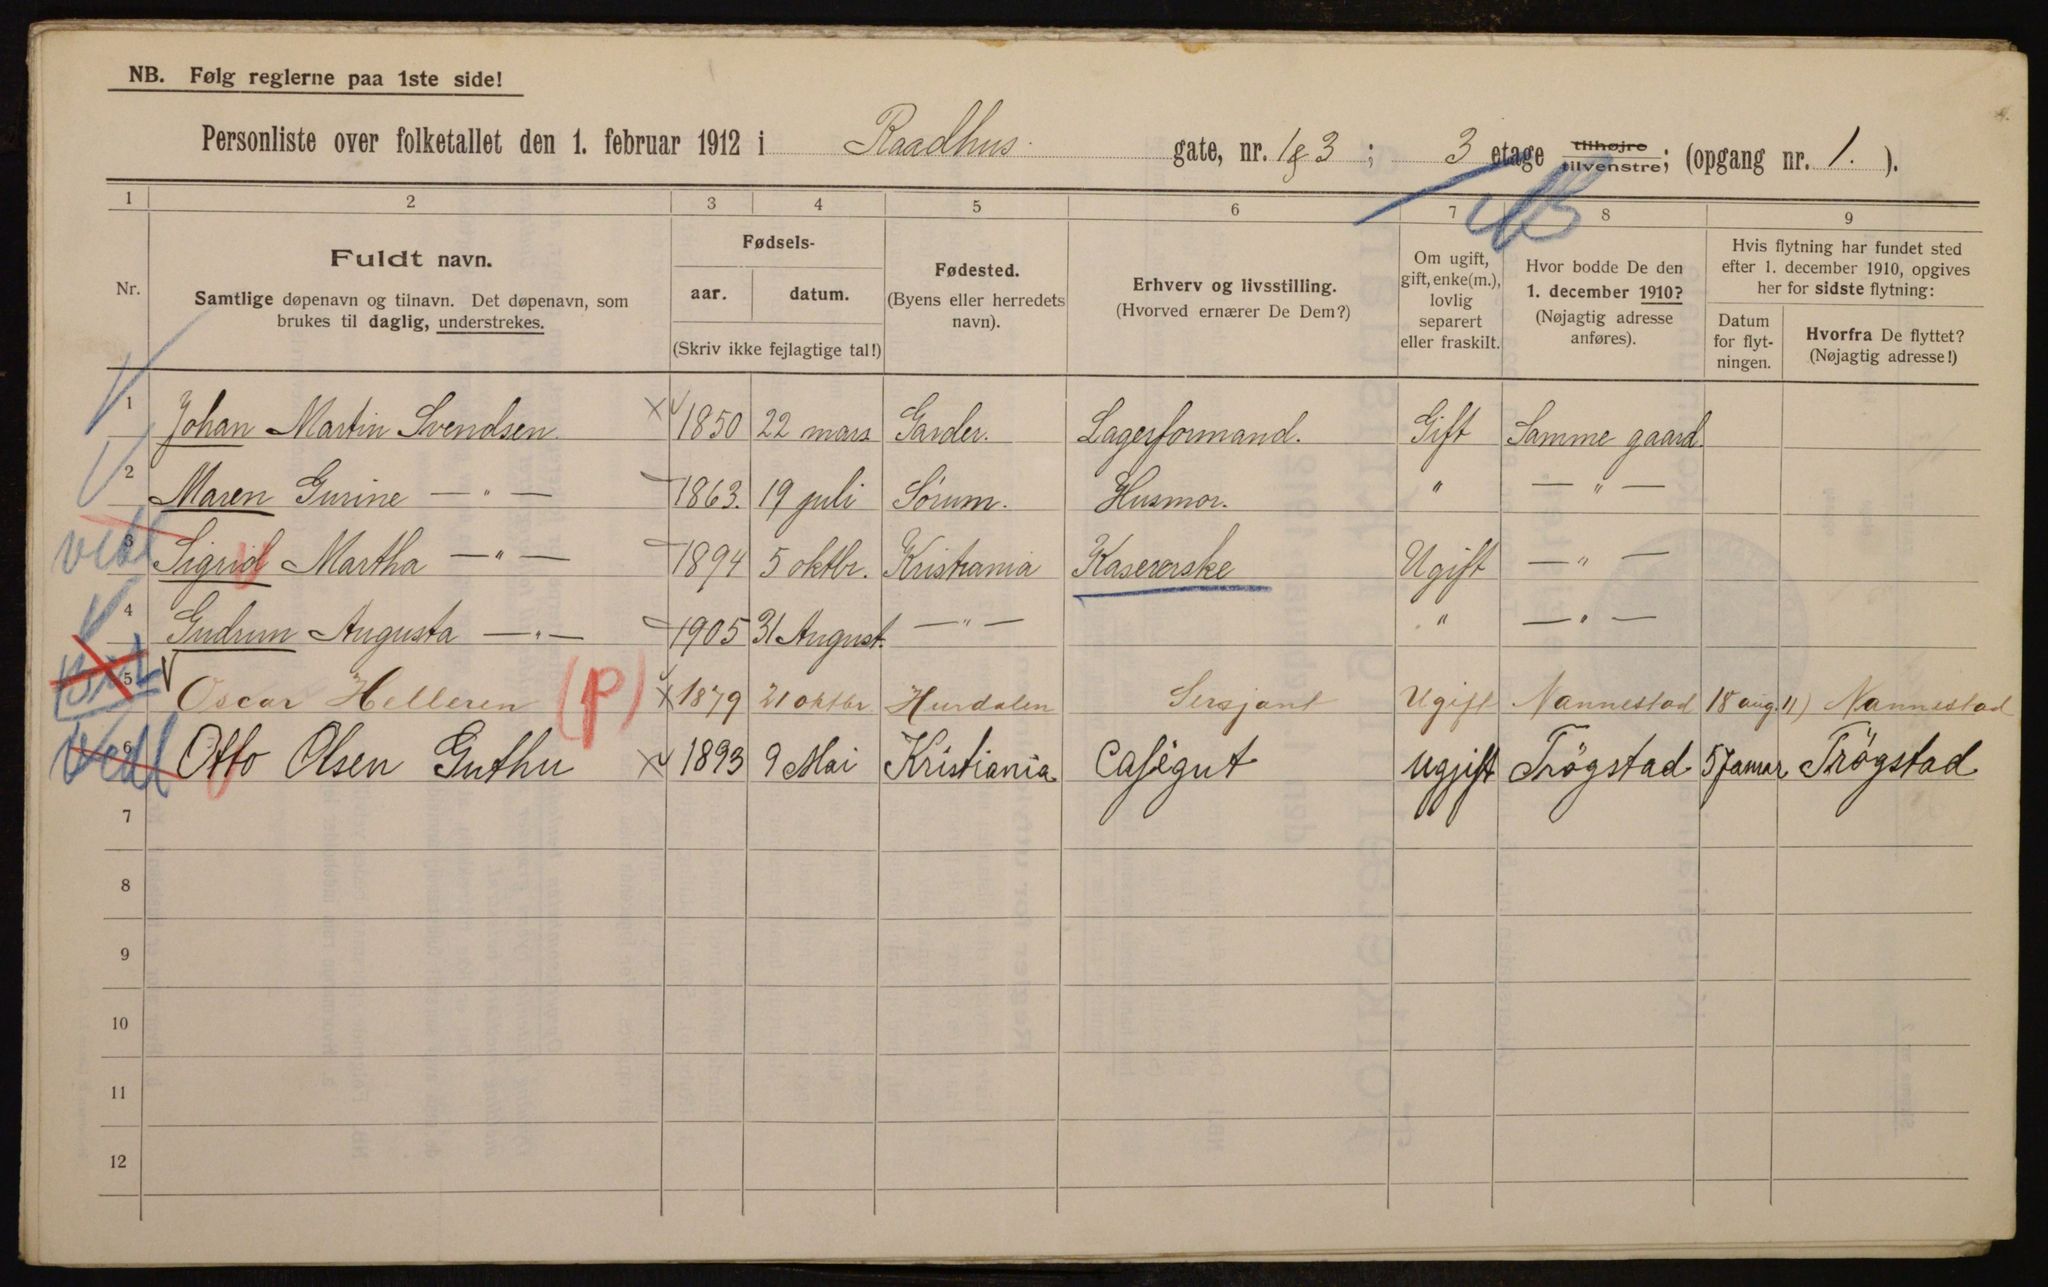 NB. Følg reglerne paa 1ste side!
Personliste over folketallet den 1. februar 1912 i Raadhus gate, nr. 1&3; 3 etage tilhøjre tilvenstre; (opgang nr. 1.).
1 2 3 4 5 6 7 8 9
Nr. Fuldt navn. Samtlige døpenavn og tilnavn. Det døpenavn, som brukes til daglig, understrekes.
Fødsels- aar. datum. (Skriv ikke fejlagtige tal!)
Fødested. (Byens eller herredets navn).
Erhverv og livsstilling. (Hvorved ernærer De Dem?)
Om ugift, gift, enke(m.), lovlig separert eller fraskilt.
Hvor bodde De den 1. december 1910? (Nøjagtig adresse anføres).
Hvis flytning har fundet sted efter 1. december 1910, opgives her for sidste flytning:
Datum for flyt-ningen.
Hvorfra De flyttet? (Nøjagtig adresse!)
1 Johan Martin Svendsen 1850 22 mars Garder. Lagerformand. Gift Samme gaard.
2 Maren Gurine —"— 1863. 19 juli Sørum. Husmor. " —"—
3 Sigrid Martha —"— 1894 5 oktbr. Kristiania Kasererske Ugift —"—
4 Gudrun Augusta —"— 1905 31 August. —"— " —"—
5 Oscar Helleren (p) 1879 21 oktbr Hurdalen Sersjant Ugift Nannestad 18 aug. 11) Nannestad
6 Otto Olsen Guthu 1893 9 Mai Kristiania Cafégut Ugjift Trögstad 5 Januar Trögstad
7
8
9
10
11
12